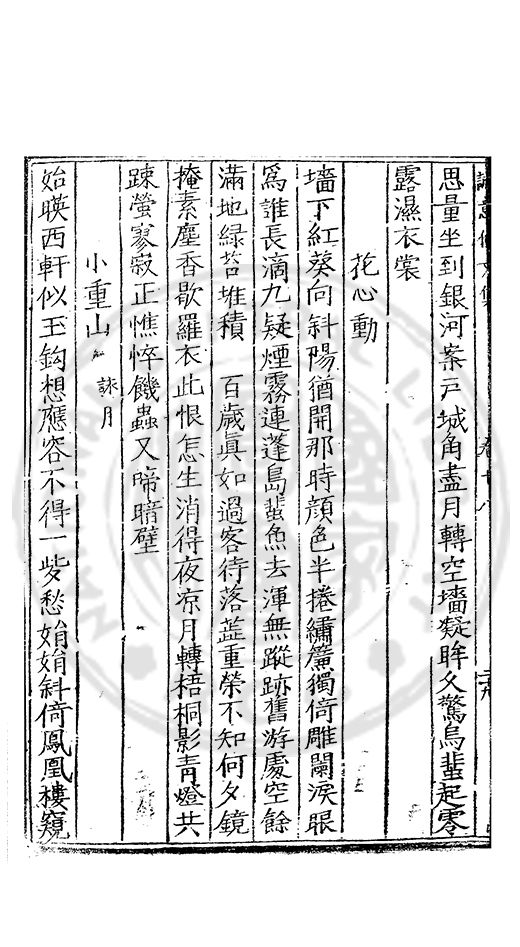 思量坐到銀河案戸城角盡月轉空墻凝眸久驚烏蜚起零
露濕衣裳
花心動
墻下紅葵向斜陽猶開那時顔色半捲繡簾獨倚雕闌淚眼
爲誰長滴九疑煙霧連蓬島蜚魚去渾無蹤跡舊游處空餘
滿地緑苔堆積　百歲眞如過客待落蕋重榮不知何夕鏡
掩素塵香歇羅衣此恨怎生消得夜凉月轉梧桐影青燈共
踈螢寥寂正憔悴饑蟲又啼暗壁
小重山 詠月
始暎西軒似玉鈎想應容不得一㱔愁娟娟斜倚鳳凰樓窺